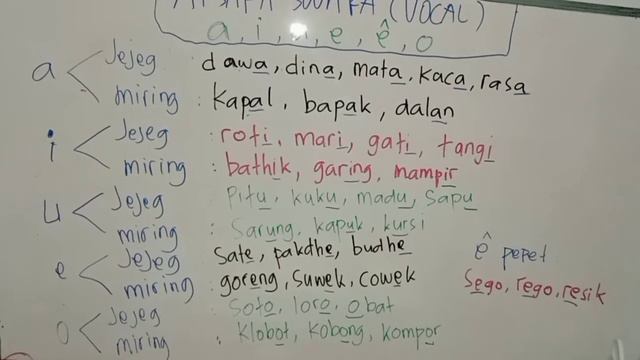 AKSARA SWARA (VOCAL)
a, i, u, e, ê, o
a < Jejeg : dawa, dina, mata, kaca, rasa
miring : kapal, bapak, dalan
i < Jejeg : roti, mari, gati, tangi
miring : bathik, garing, mampir
u < Jejeg : pitu, kuku, madu, sapu
miring : Sarung, kapuk, kursi
e < Jejeg : sate, pakdhe, budhe
miring : goreng, suwek, cowek
ê pepet
Sego, rego, resik
o < Jejeg : Soto, loro, obat
miring : Klobot, kobong, kompor